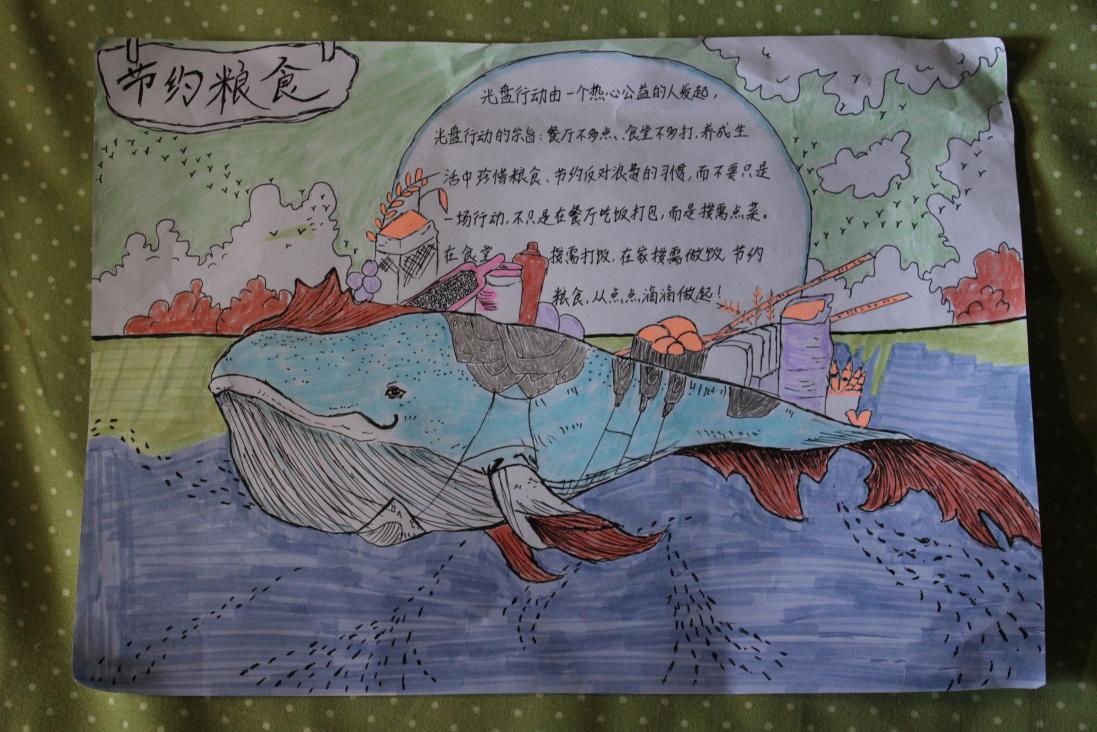 节约粮食
光盘行动由一个热心公益的人发起，
光盘行动的宗旨：餐厅不多点、食堂不多打，养成生
活中珍惜粮食、节约反对浪费的习惯，而不要只是
一场行动，不只是在餐厅吃饭打包，而是按需点菜。
在食堂 按需打饭，在家按需做饭 节约
粮食，从点点滴滴做起！